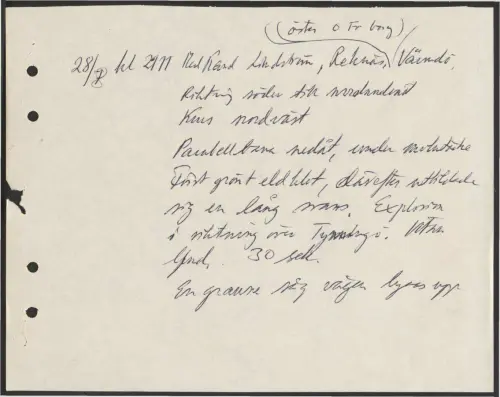 (öster o Fr borg)
28/ kl 2111 Richard Lindström, Reknäs, Värmdö.
Riktning söder till nordnordost
Kurs nordväst
Parabellbana nedåt, under molntäcke
Först grönt eldklot, därefter utbildade
sig en lång svans. Explosion
i riktning över Tynningö. Utan
ljud. 30 sek.
En granne såg vägen lysas upp